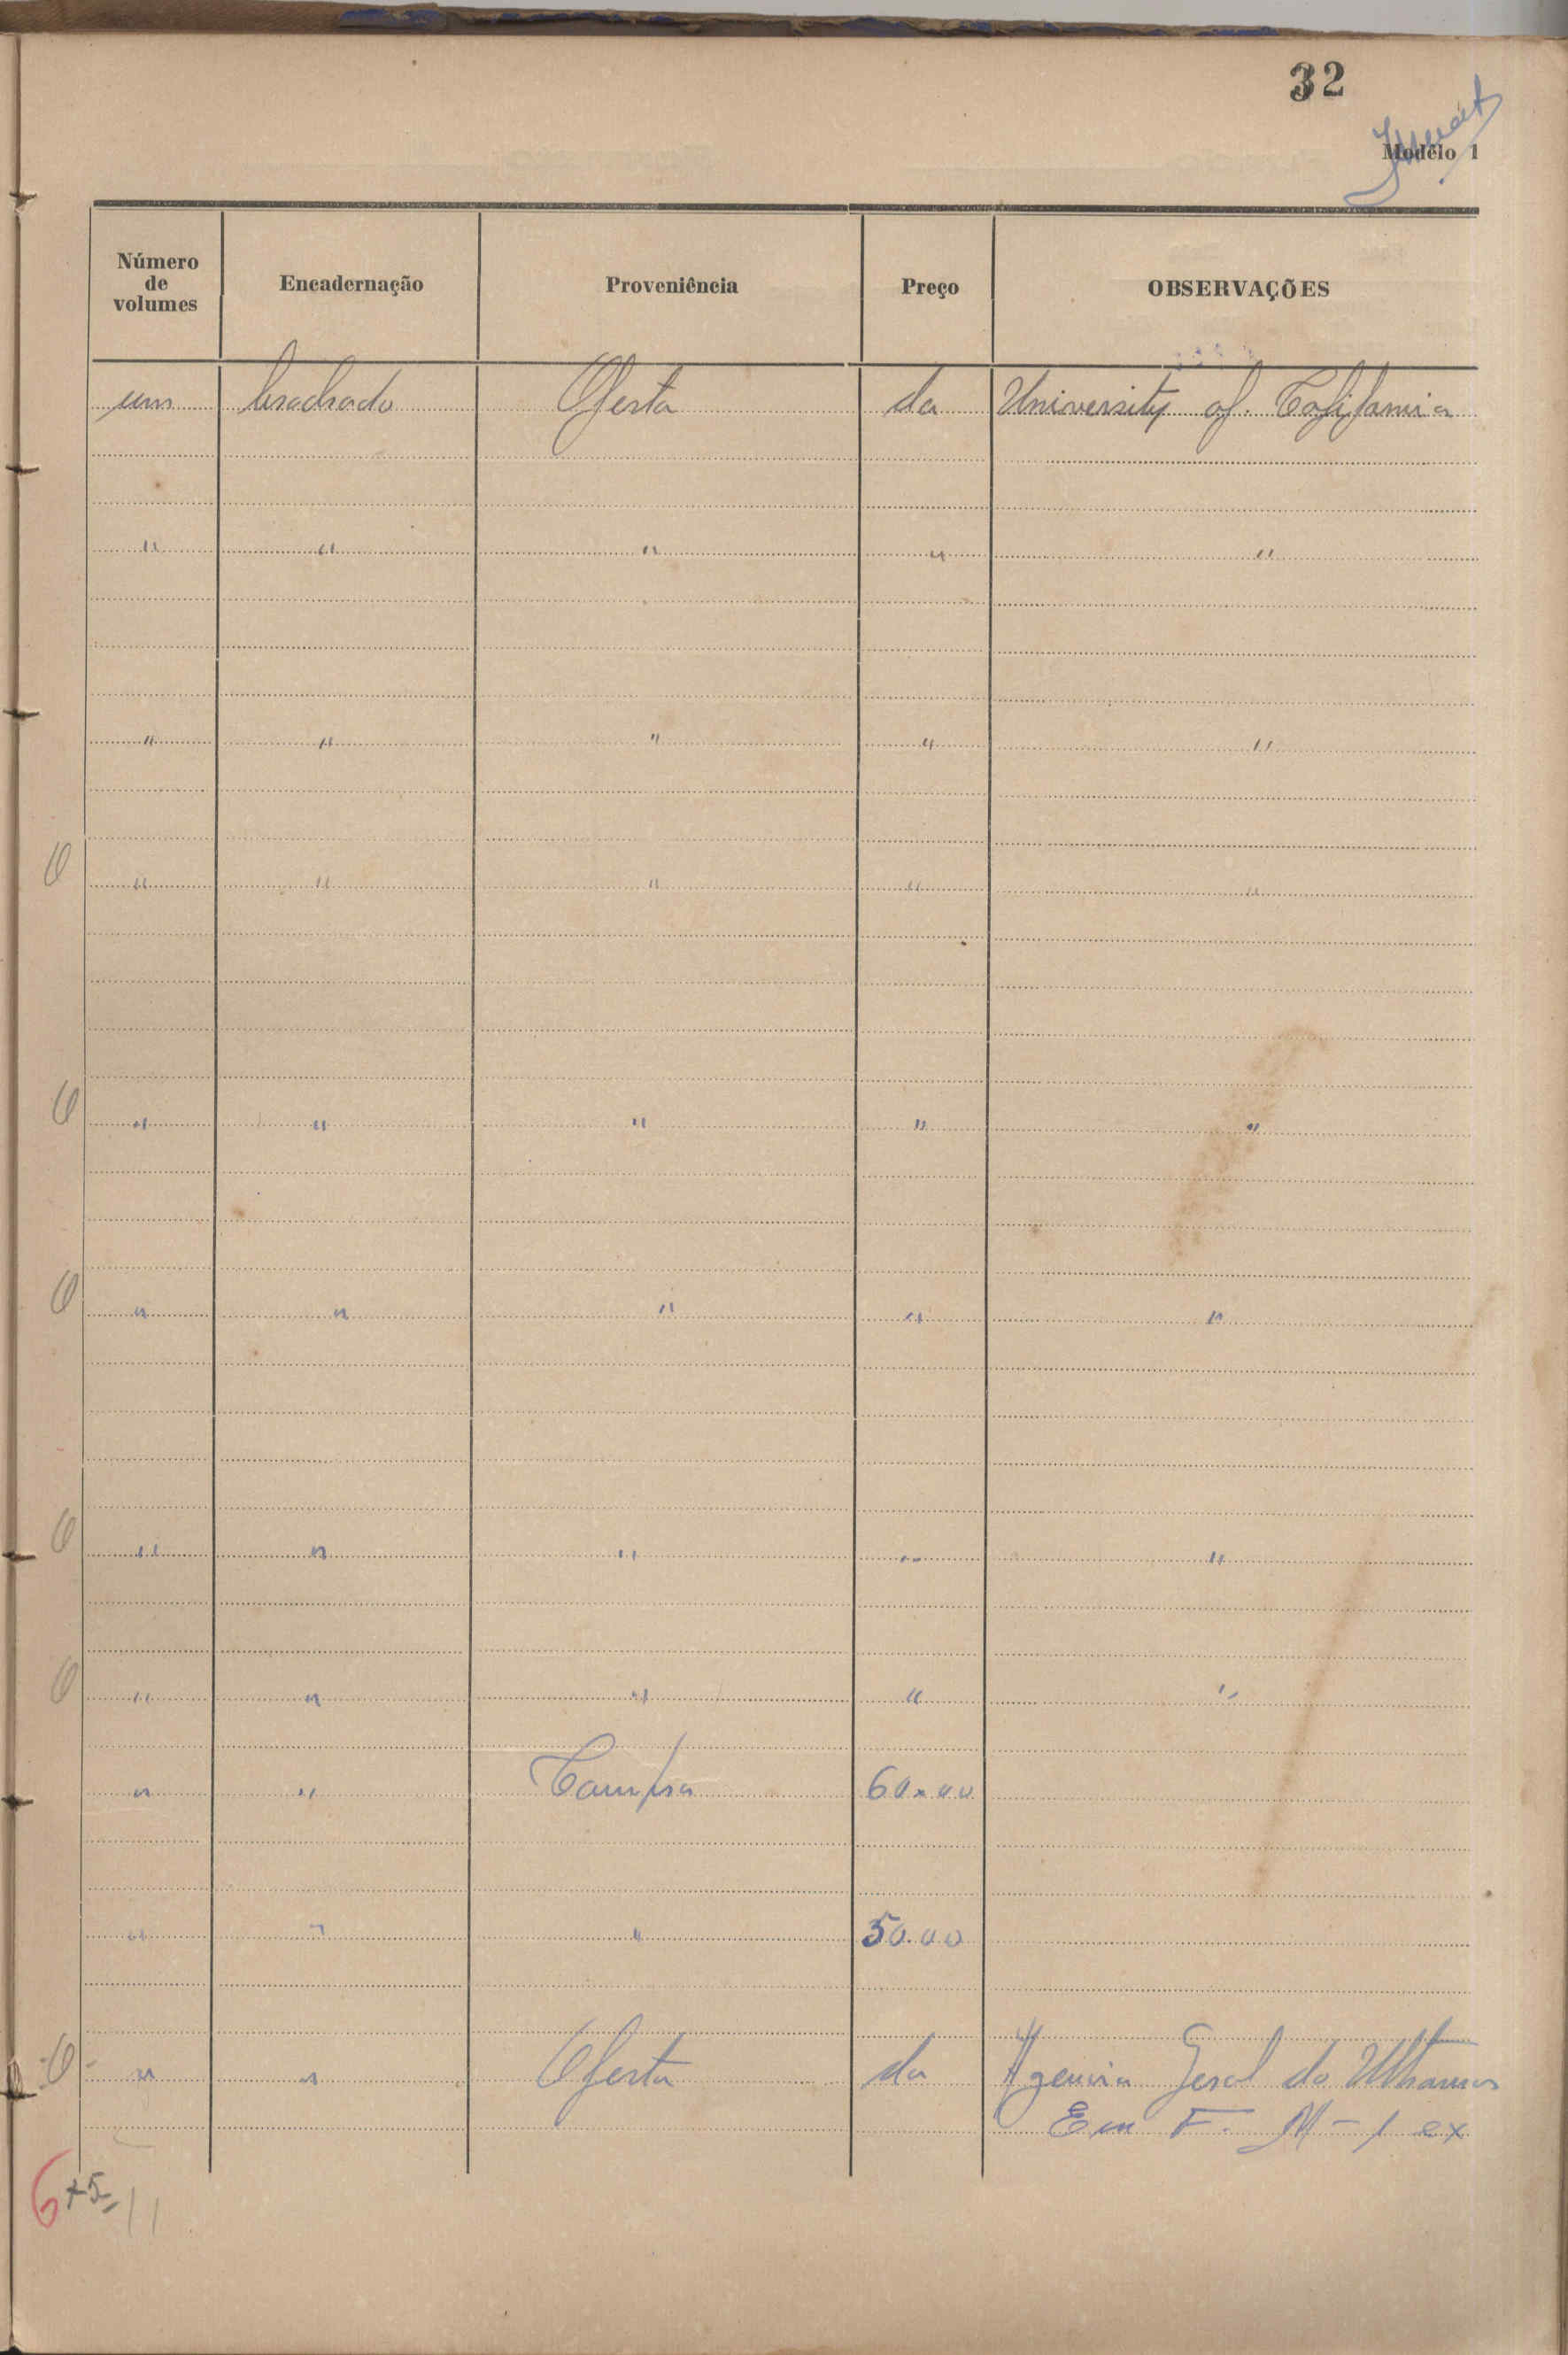 32
Modêlo 1
Número de volumes Encadernação Proveniência Preço OBSERVAÇÕES
um brochado Oferta da University of California
" " " " "
" " " " "
0 " " " " "
0 " " " " "
0 " " " " "
0 " " " " "
0 " " " " "
" " Compra 60.00
" " " 50.00
-0- " " Oferta da Agencia Geral do Ultramar
Em F. M - 1 ex
6+5= 11